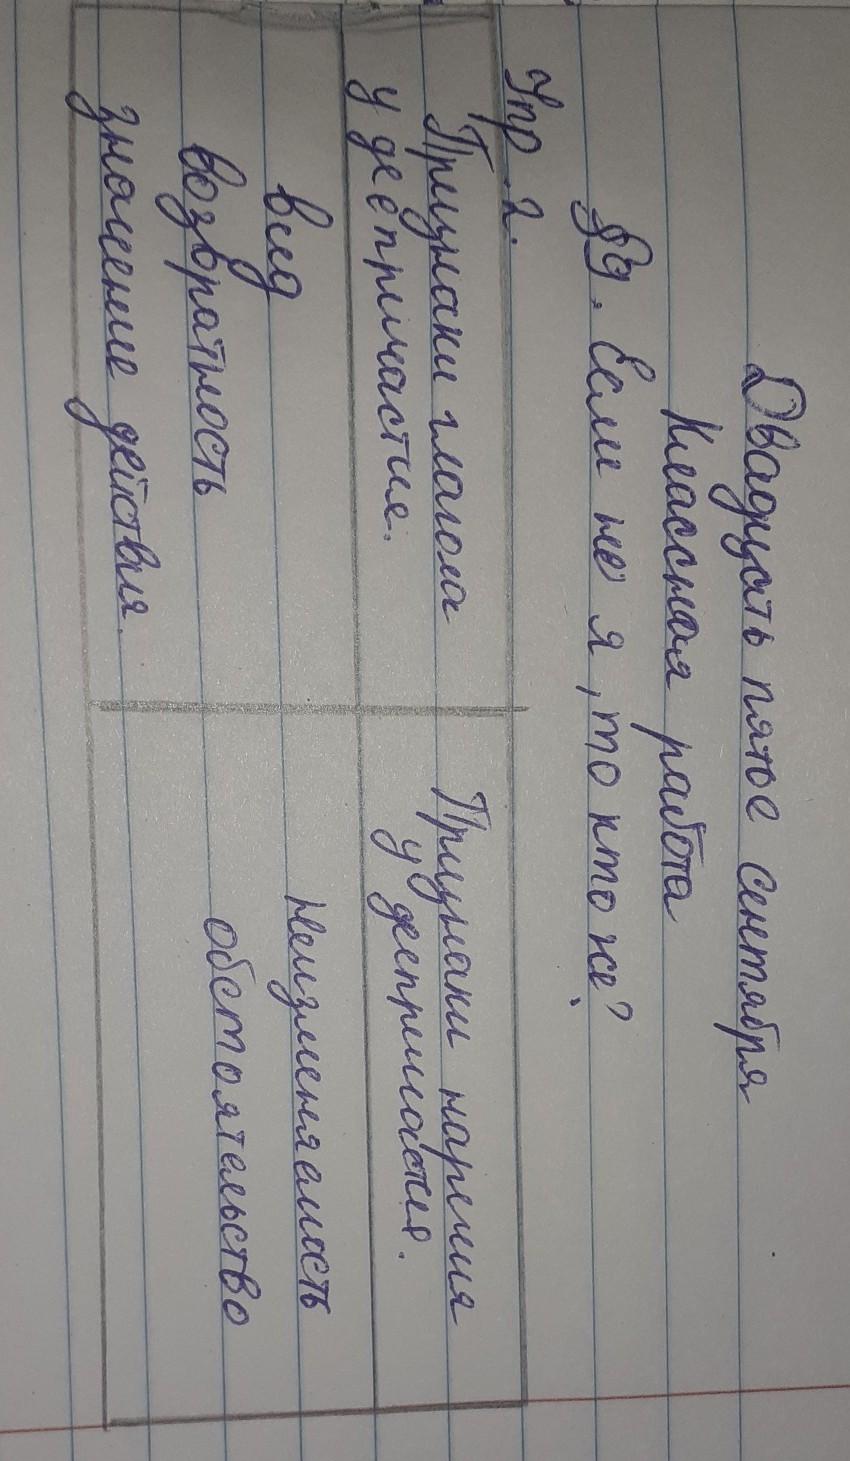 Двадцать пятое сентября
Классная работа
Если не я, то кто же?
Упр. 2.
Признаки глагола у деепричастие.
Признаки наречия у деепричастия.
вид
неизменяемость
возвратность
обстоятельство
значение действия.